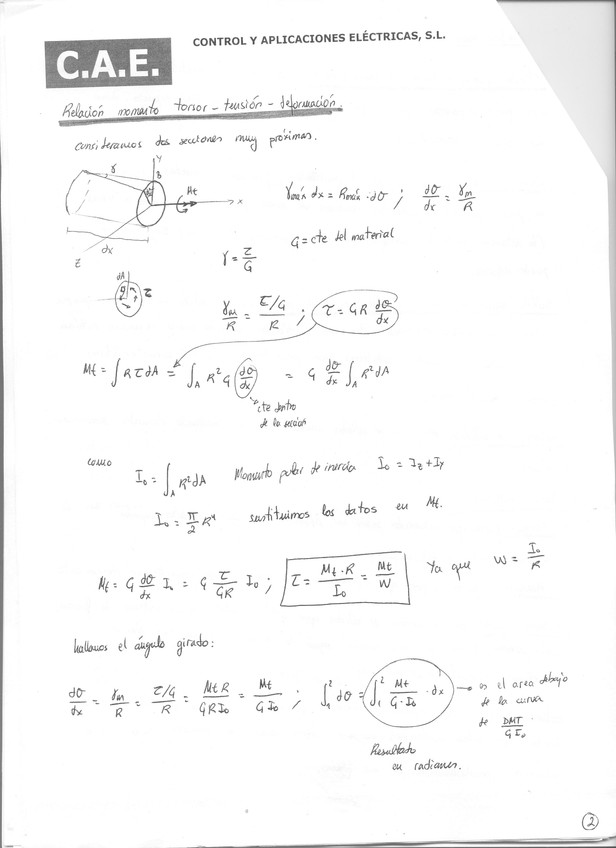 C.A.E.
CONTROL Y APLICACIONES ELÉCTRICAS, S.L.
Relación momento torsor - tensión - deformación.
consideramos dos secciones muy próximas.
γ Y B Mt x
dx Z
γmáx dx = Rmáx · dθ ; dθ/dx = γm/R
γ = τ/G G = cte del material
dA τ
γm/R = τ/G / R ; τ = G R dθ/dx
Mt = ∫ R τ dA = ∫A R² G dθ/dx = G dθ/dx ∫A R² dA
cte dentro
de la sección
como I₀ = ∫A R² dA Momento polar de inercia I₀ = Iz + Iy
I₀ = π/2 R⁴ sustituimos los datos en Mt.
Mt = G dθ/dx I₀ = G τ/GR I₀ ; τ = Mt · R / I₀ = Mt/W Ya que W = I₀/R
hallamos el ángulo girado:
dθ/dx = γm/R = τ/G / R = Mt R / G R I₀ = Mt / G I₀ ; ∫₁² dθ = ∫₁² Mt / G · I₀ · dx
es el area debajo
de la curva
de DMT / G I₀
Resultado
en radianes.
2